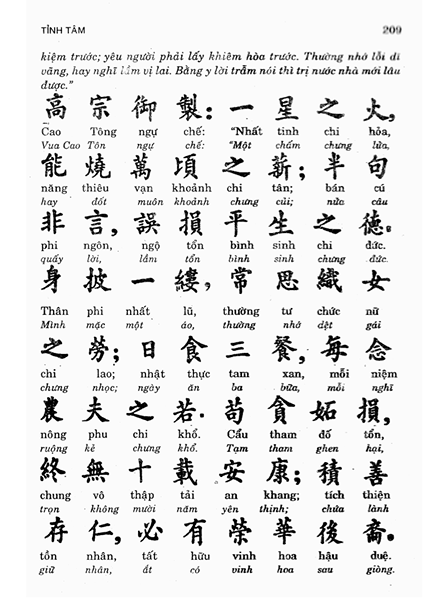 TỈNH TÂM 209
kiệm trước; yêu người phải lấy khiêm hòa trước. Thường nhớ lỗi dĩ
vãng, hay nghĩ lầm vị lai. Bằng y lời trẫm nói thì trị nước nhà mới lâu
được."
高 宗 御 製：一 星 之 火，
Cao Tông ngự chế: "Nhất tinh chi hỏa,
Vua Cao Tôn ngự chế: "Một chấm chưng lửa,
能 燒 萬 頃 之 薪；半 句
năng thiêu vạn khoảnh chi tân; bán cú
hay đốt muôn khoảnh chưng củi; nửa câu
非 言，誤 損 平 生 之 德。
phi ngôn, ngộ tổn bình sinh chi đức.
quấy lời, lầm tổn bình sinh chưng đức.
身 披 一 縷，常 思 織 女
Thân phi nhất lũ, thường tư chức nữ
Mình mặc một áo, thường nhớ dệt gái
之 勞；日 食 三 餐，每 念
chi lao; nhật thực tam xan, mỗi niệm
chưng nhọc; ngày ăn ba bữa, mỗi nghĩ
農 夫 之 苦．苟 貪 妬 損，
nông phu chi khổ. Cẩu tham đố tổn,
ruộng kẻ chưng khổ. Tạm tham ghen hại,
終 無 十 載 安 康；積 善
chung vô thập tải an khang; tích thiện
trọn không mười năm yên thịnh; chứa lành
存 仁，必 有 榮 華 後 裔。
tồn nhân, tất hữu vinh hoa hậu duệ.
giữ nhân, ắt có vinh hoa sau giòng.